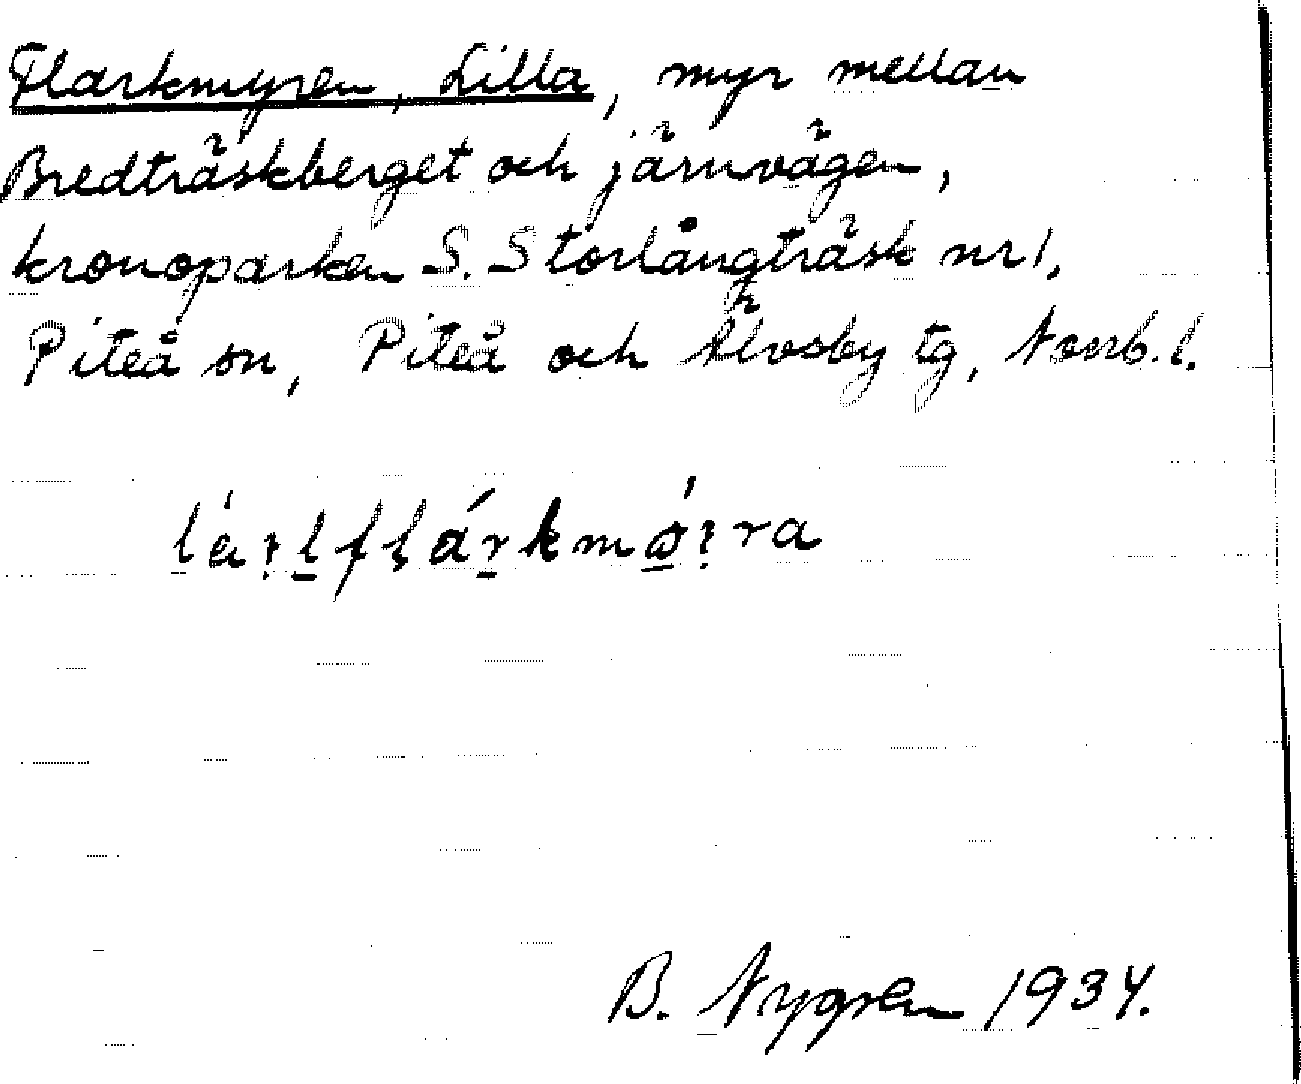 Flarkmyren, Lilla, myr mellan
Bredträskberget och järnvägen,
kronoparken S. Storlångträsk nr 1,
Piteå sn, Piteå och Älvsby tg, Norrb. l.
B. Nygren 1934.